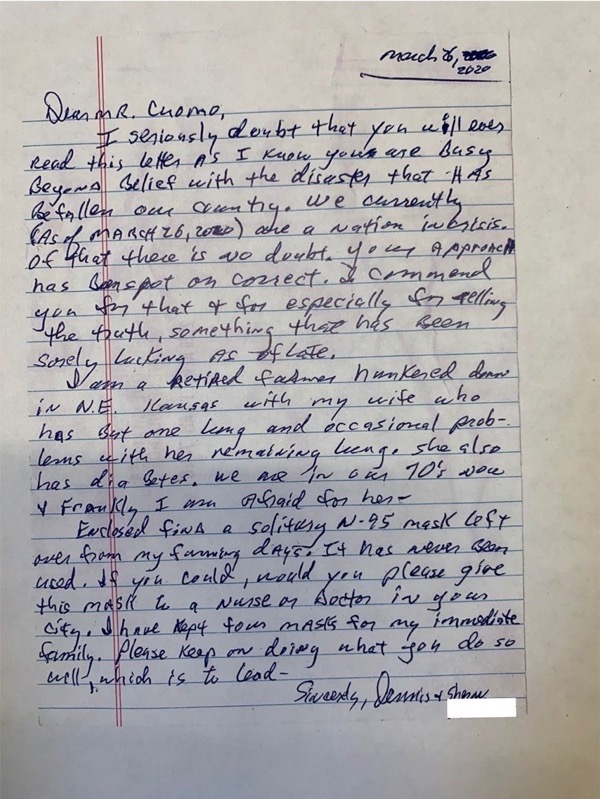 March 26,
2020
Dear MR. Cuomo,
I seriously doubt that you will ever
read this letter As I know you are Busy
Beyond Belief with the disaster that HAS
Befallen our country. We currently
(As of MARCH 26, 2020) are a Nation in crisis.
Of that there is no doubt. Your Approach
has Been spot on correct. I commend
you for that & for especially for telling
the truth, something that has Been
sorely lacking As of late.
I am a Retired farmer hunkered down
in N.E. Kansas with my wife who
has But one lung and occasional prob-
lems with her remaining lung. She also
has diaBetes. We are in our 70's now
& Frankly I am Afraid for her-
Enclosed find a solitary N-95 mask left
over from my farming days. It has never Been
used. If you could, would you please give
this mask to a Nurse or Doctor in your
city. I have kept four masks for my immediate
family. Please keep on doing what you do so
well, which is to lead-
Sincerely, Dennis &